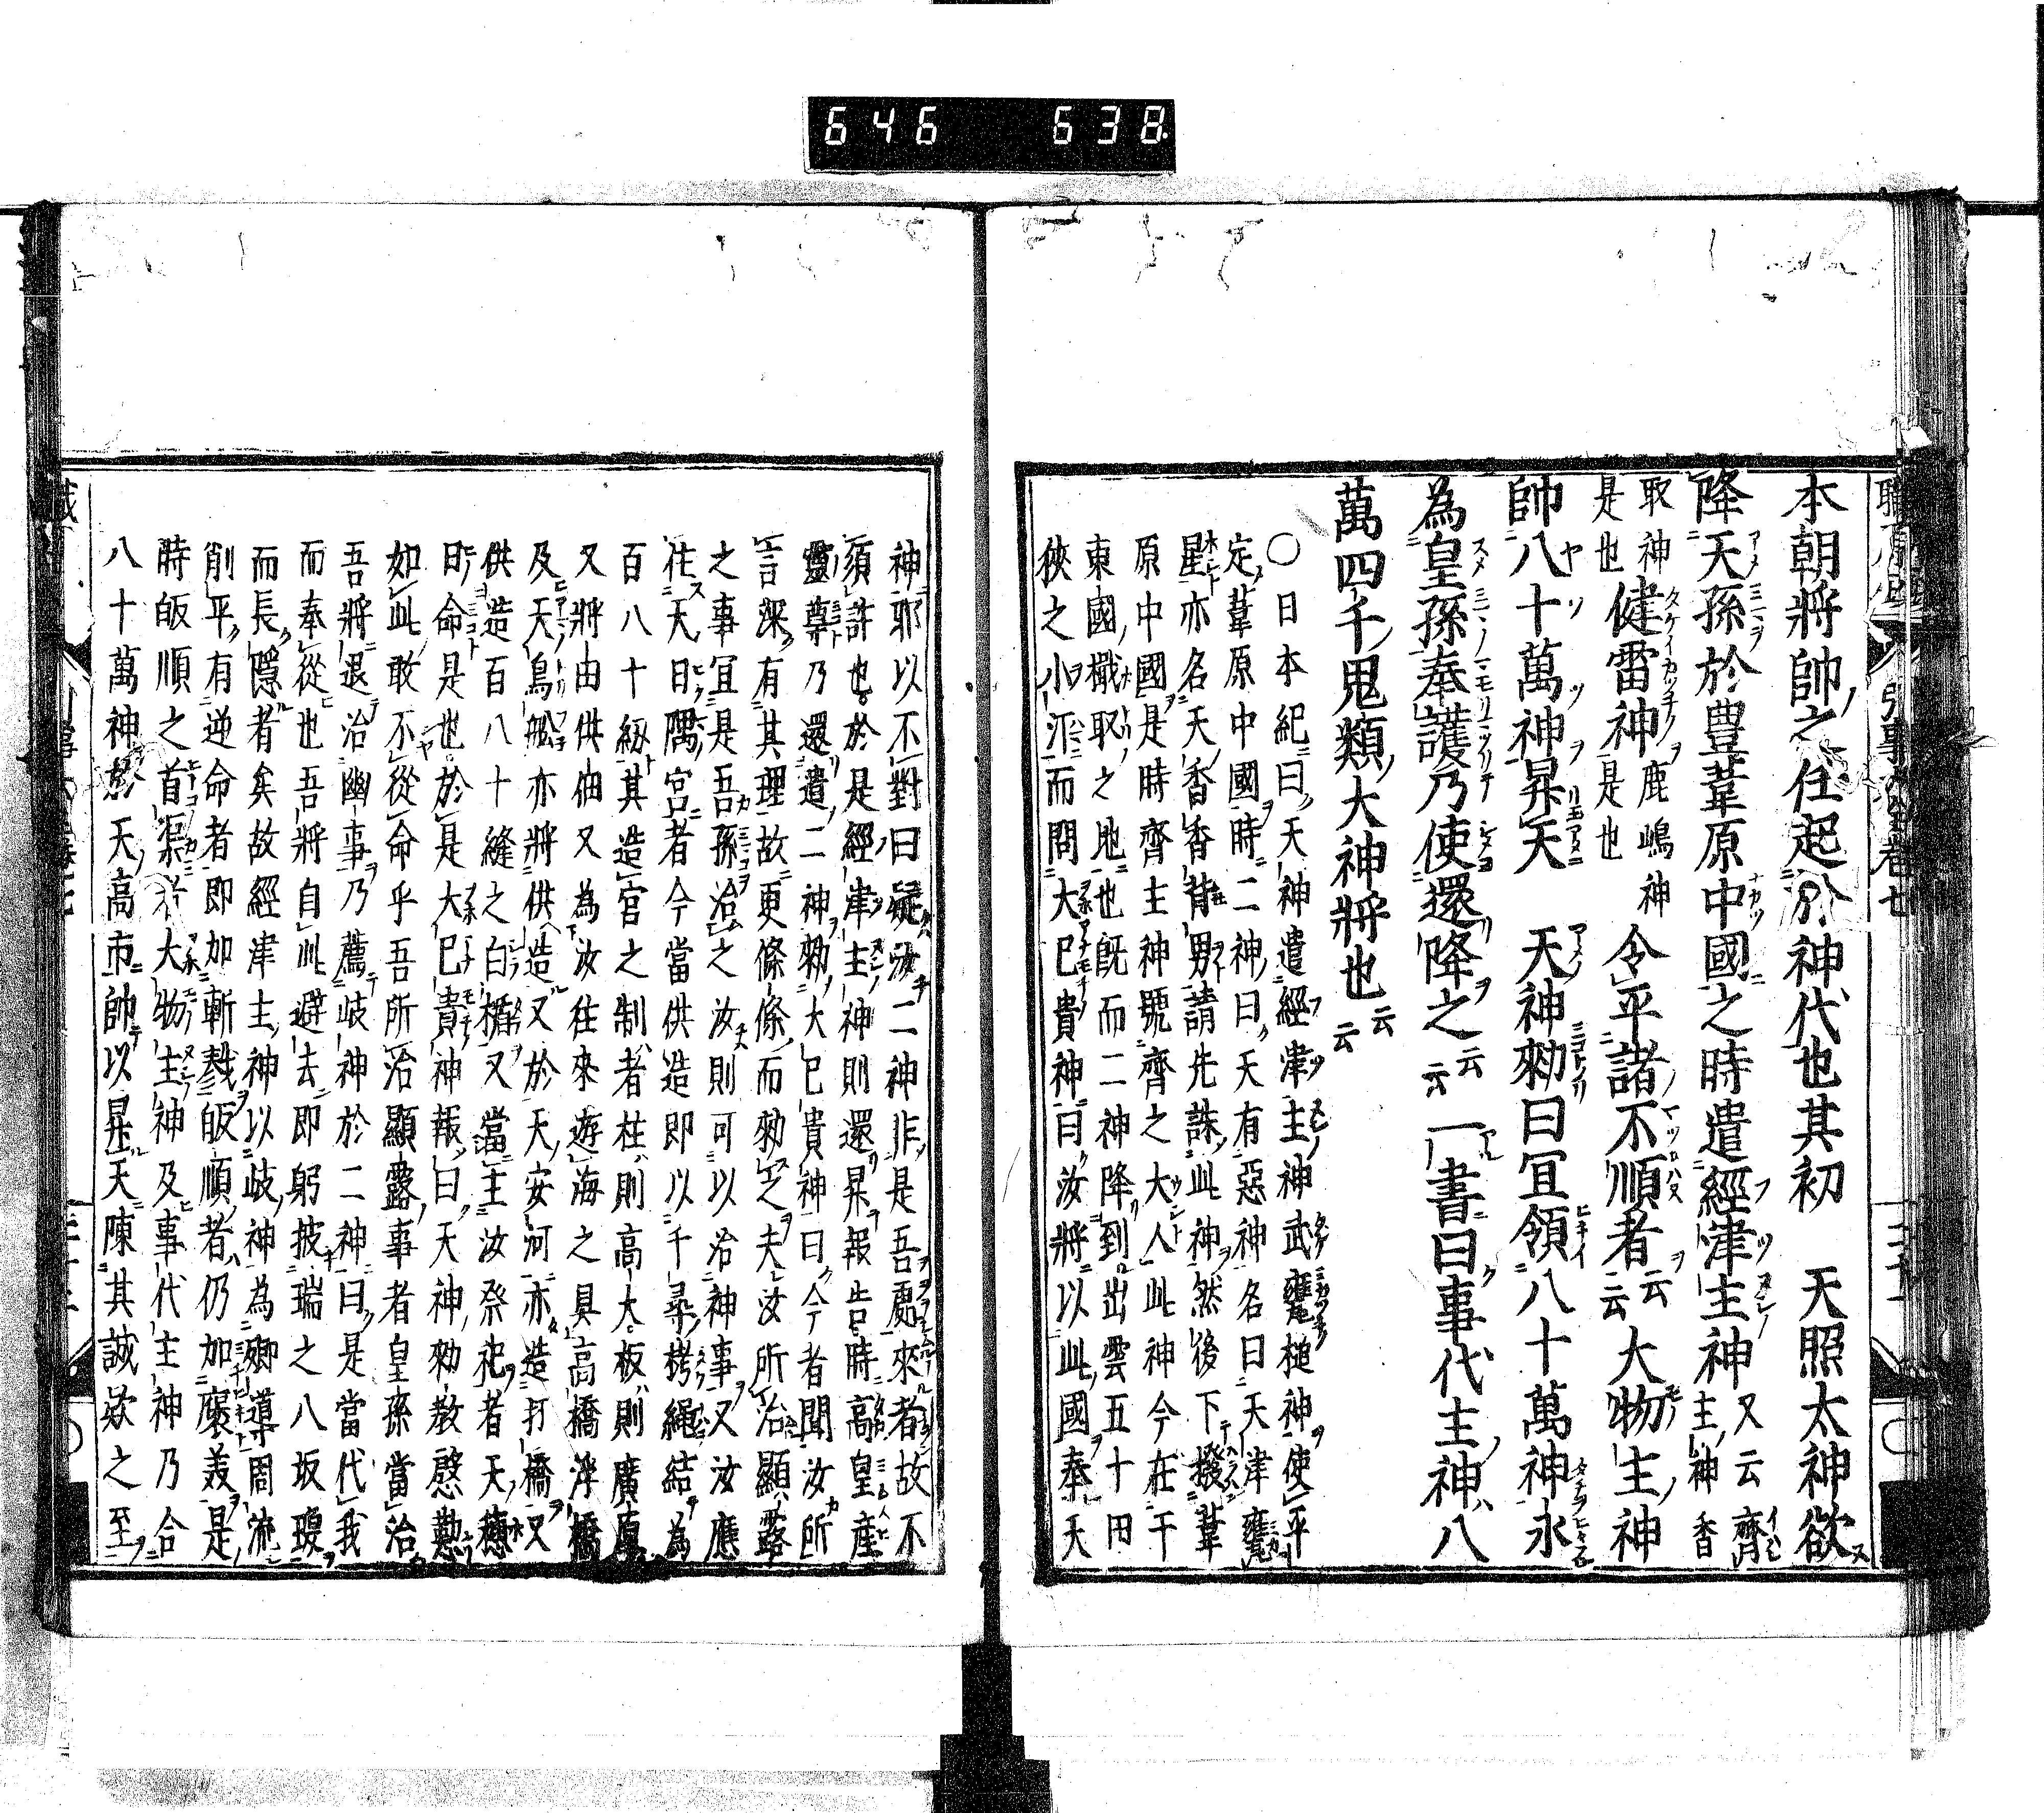 646 638
本朝將帥之任起於神代也其初　天照太神欲
降天孫於豊葦原中國之時遣經津主神又云齊主神香
取神是也健雷神鹿嶋神是也令平諸不順者云云大物主神
帥八十萬神昇天　天神勑曰宜領八十萬神永
為皇孫奉護乃使還降之云云一書曰事代主神八
萬四千鬼類大神將也云云
〇日本紀曰天神遣經津主神武甕槌神使平
定葦原中國時二神曰天有惡神名曰天津甕
星亦名天香香背男請先誅此神然後下撥葦
原中國是時齊主神號齊之大人此神今在干
東國檝取之地也旣而二神降到出雲五十田
狹之小汀而問大巳貴神曰汝將以此國奉天
神耶以不對曰疑汝二神非是吾處來者故不
須許也於是經津主神則還昇報告時高皇產
靈尊乃還遣二神勑大巳貴神曰今者聞汝所
言深有其理故更條條而勑之夫汝所治顯露
之事宜是吾孫治之汝則可以治神事又汝應
住天日隅宮者今當供造即以千尋栲繩結為
百八十紐其造宮之制者柱則高大板則廣厚
又將田供佃又為汝往來遊海之具高橋浮橋
及天鳥舩亦將供造又於天安河亦造打橋又
供造百八十縫之白楯又當主汝祭祀者天穗
日命是也於是大巳貴神報曰天神勑教慇懃
如此敢不從命乎吾所治顯露事者皇孫當治
吾將退治幽事乃薦岐神於二神曰是當代我
而奉從也吾將自此避去即躬披瑞之八坂瓊
而長隱者矣故經津主神以岐神為鄉導周流
削平有逆命者即加斬戮皈順者仍加褒美是
時皈順之首渠者大物主神及事代主神乃合
八十萬神於天高市帥以昇天陳其誠欵之至